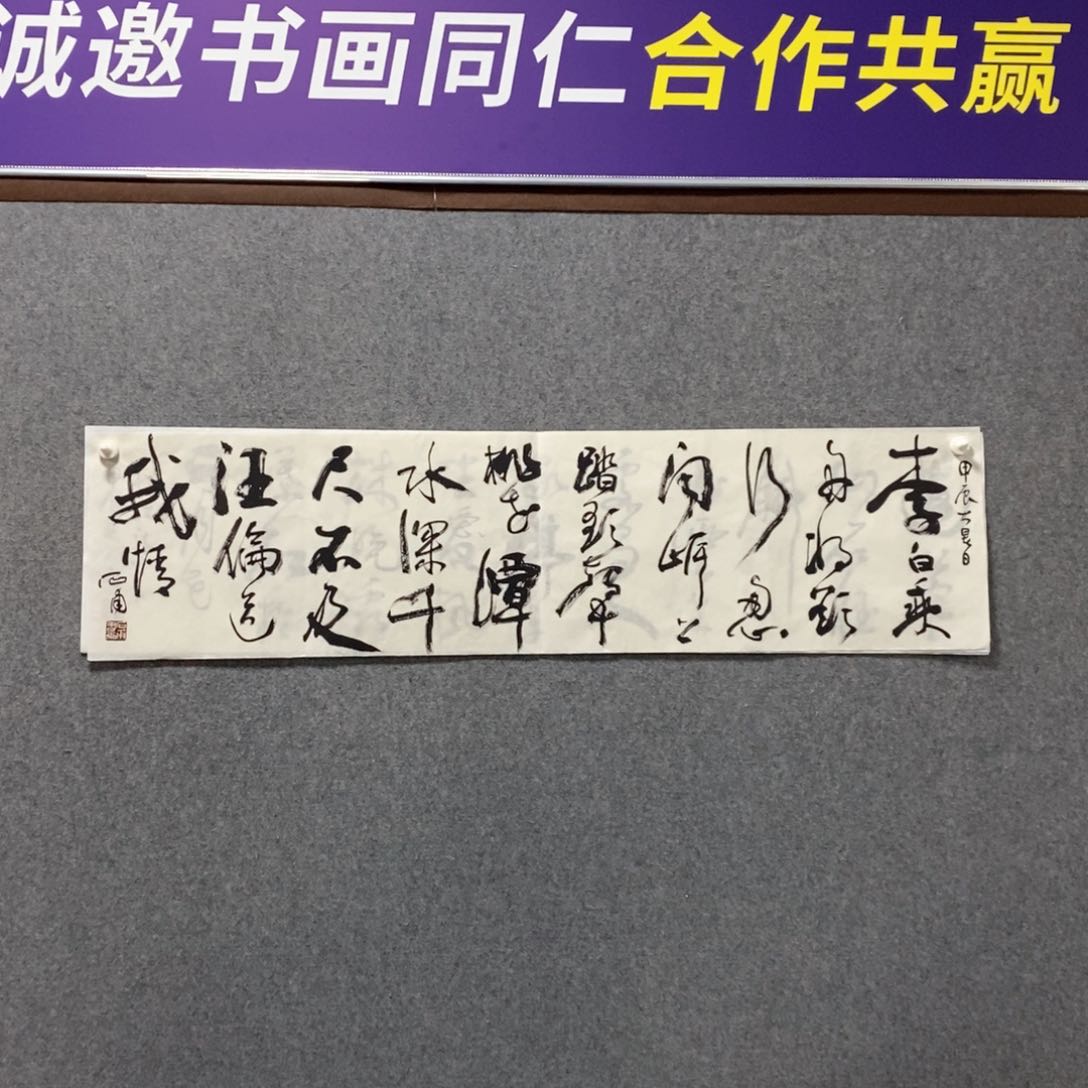 诚邀书画同仁合作共赢
甲辰大暑日
李白乘
舟将欲
行忽
闻岸上
踏歌聲
桃花潭
水深千
尺不及
汪倫送
我情